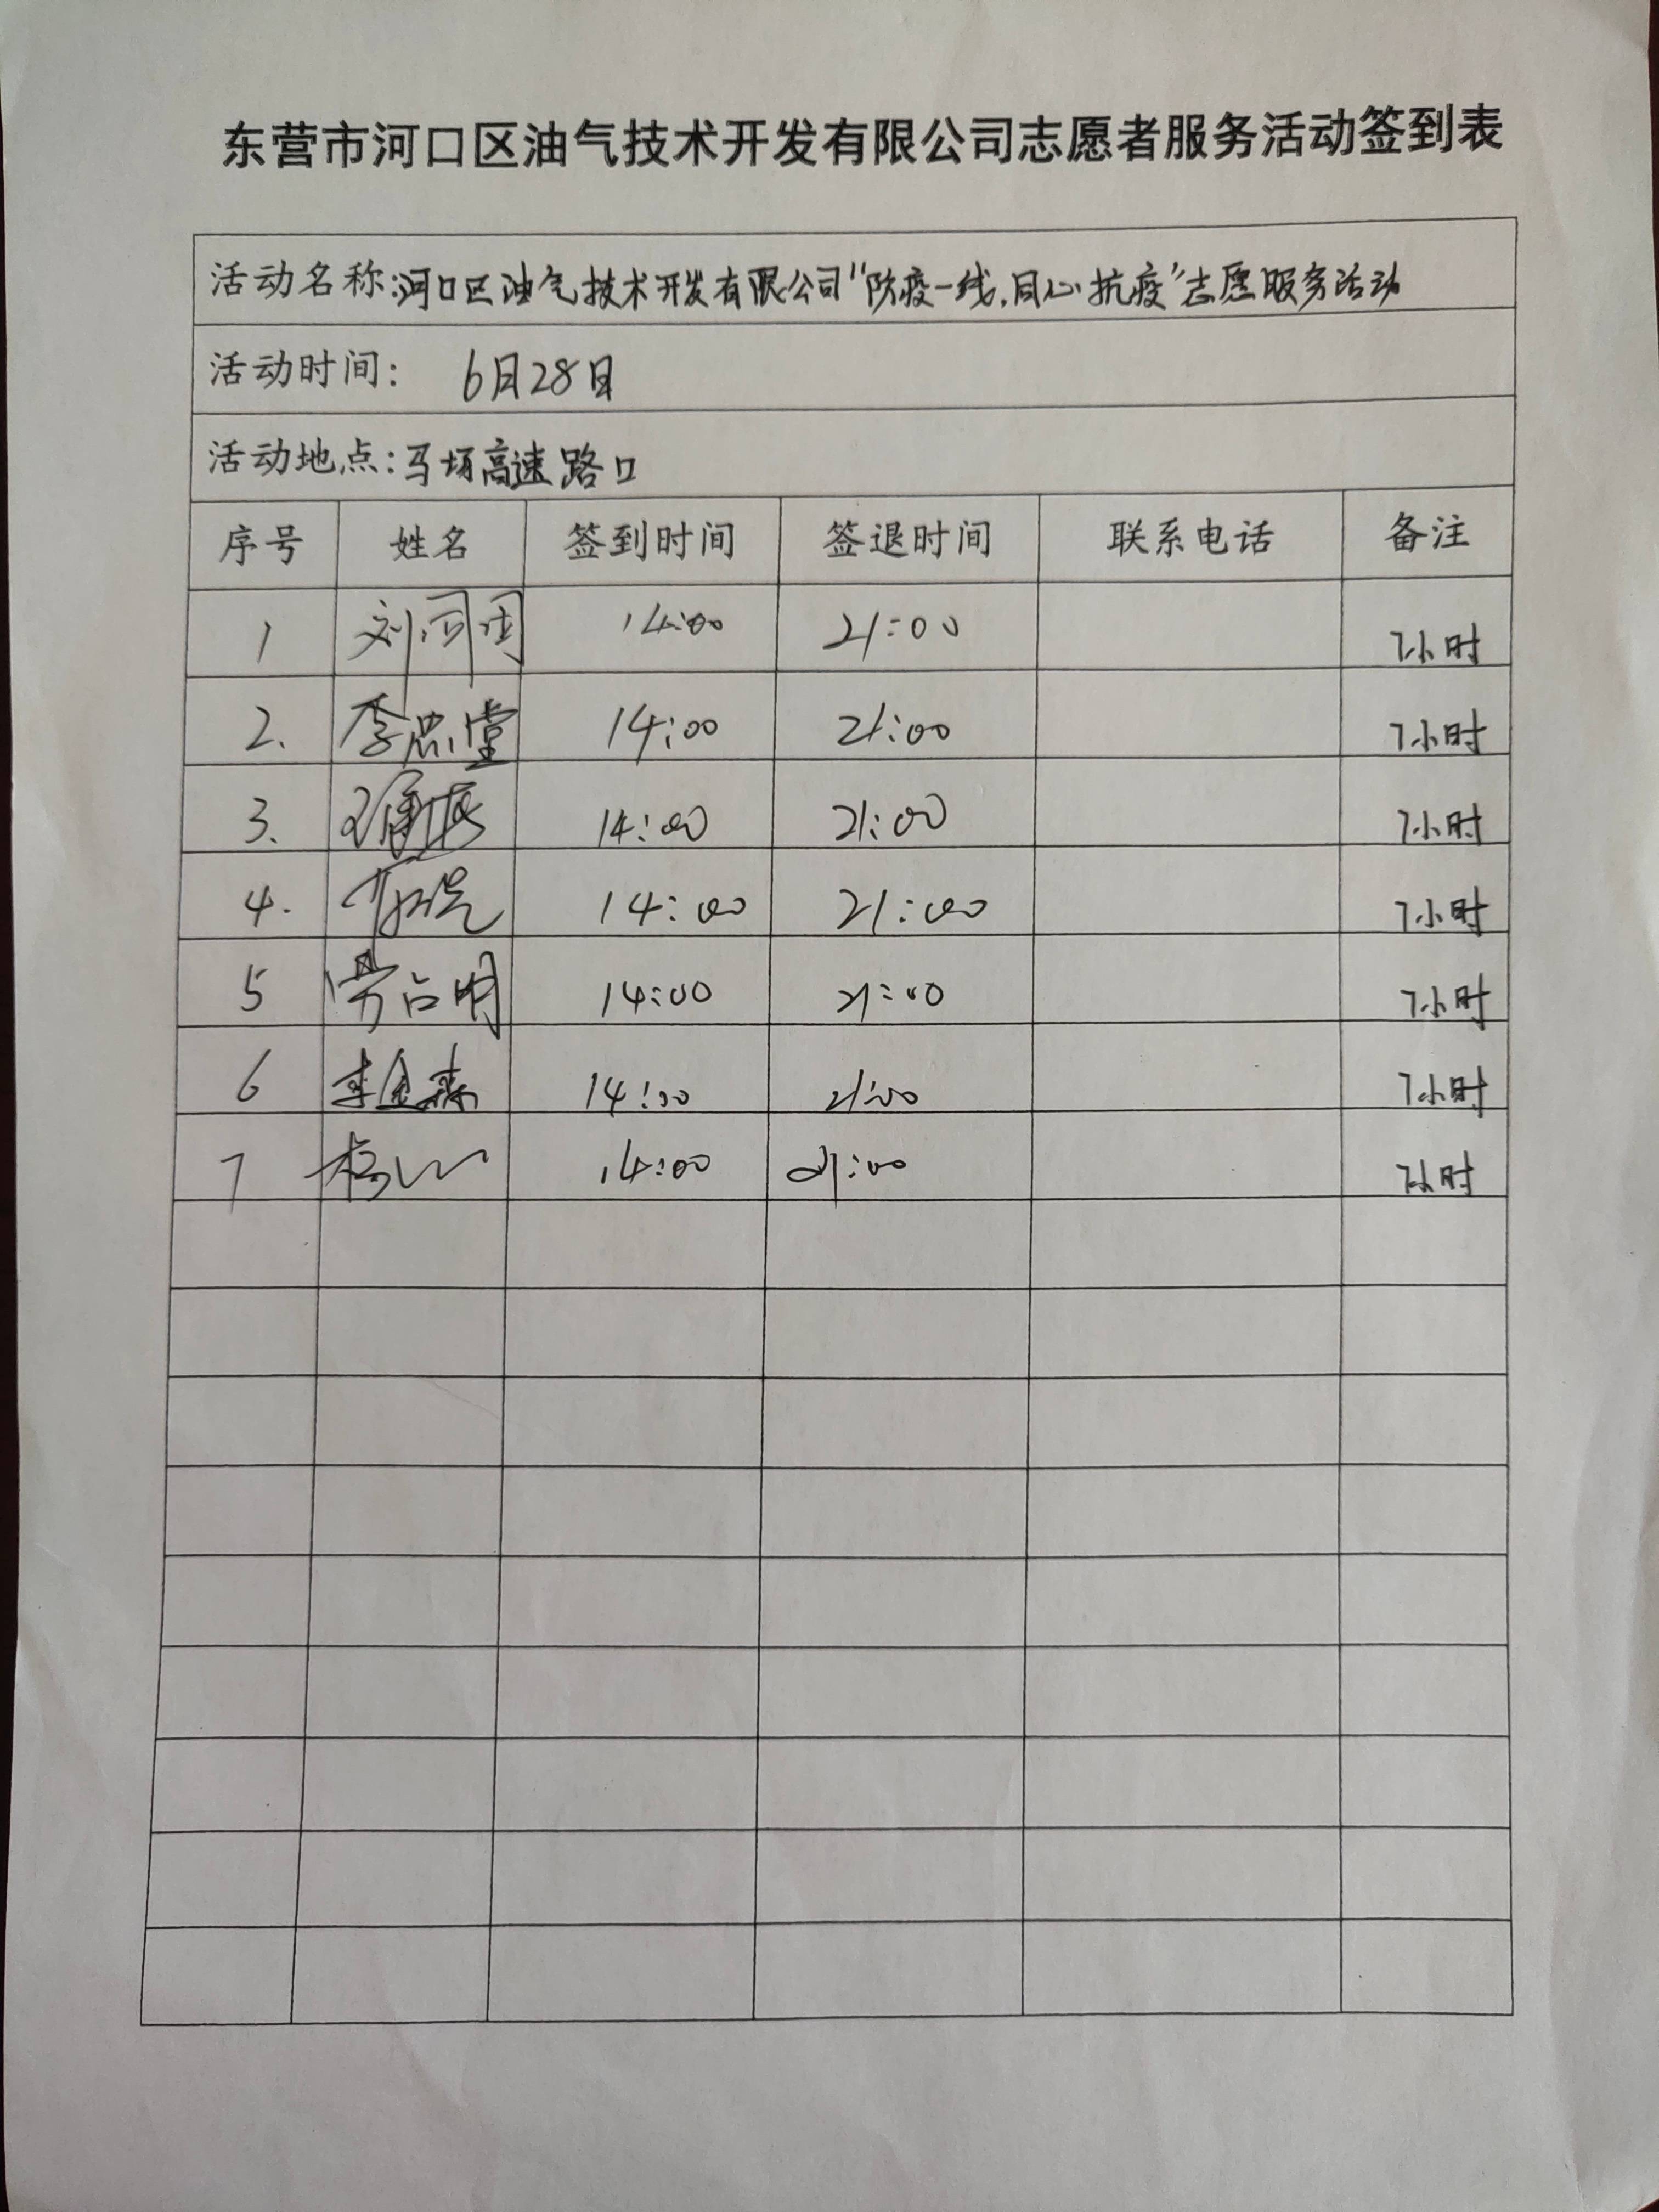 东营市河口区油气技术开发有限公司志愿者服务活动签到表
活动名称:河口区油气技术开发有限公司"防疫一线,同心抗疫"志愿服务活动
活动时间: 6月28日
活动地点:马场高速路口
序号 姓名 签到时间 签退时间 联系电话 备注
1 刘 14:00 21:00 7小时
2. 李忠堂 14:00 21:00 7小时
3. 14:00 21:00 7小时
4. 14:00 21:00 7小时
5 劳占明 14:00 21:00 7小时
6 李金森 14:00 21:00 7小时
7 14:00 21:00 7小时